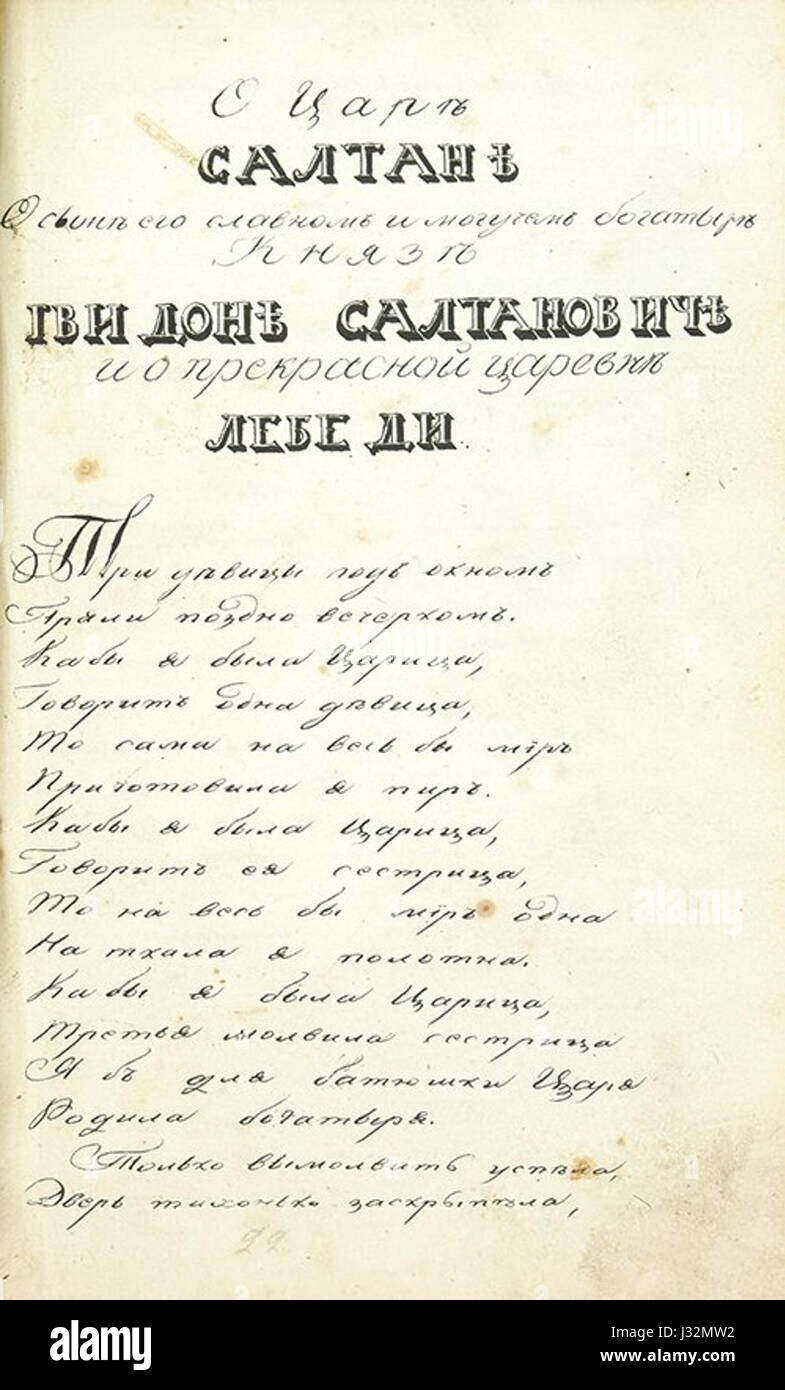 О Царѣ
САЛТАНѢ
О сынѣ его славномъ и могучемъ богатырѣ
Князѣ
ГВИДОНѢ САЛТАНОВИЧѢ
и о прекрасной царевнѣ
ЛЕБЕДИ
Три дѣвицы подъ окномъ
Пряли поздно вечеркомъ.
Кабы я была Царица,
Говоритъ одна дѣвица,
То сама на весь бы міръ
Приготовила я пиръ.
Кабы я была Царица,
Говоритъ ея сестрица,
То на весь бы міръ одна
На ткала я полотна.
Кабы я была Царица,
Третья молвила сестрица
Я бъ для батюшки Царя
Родила богатыря.
Только вымолвить успѣла,
Дверь тихонько заскрыпѣла,
22
alamy
alamy
alamy
Image ID: J32MW2
www.alamy.com